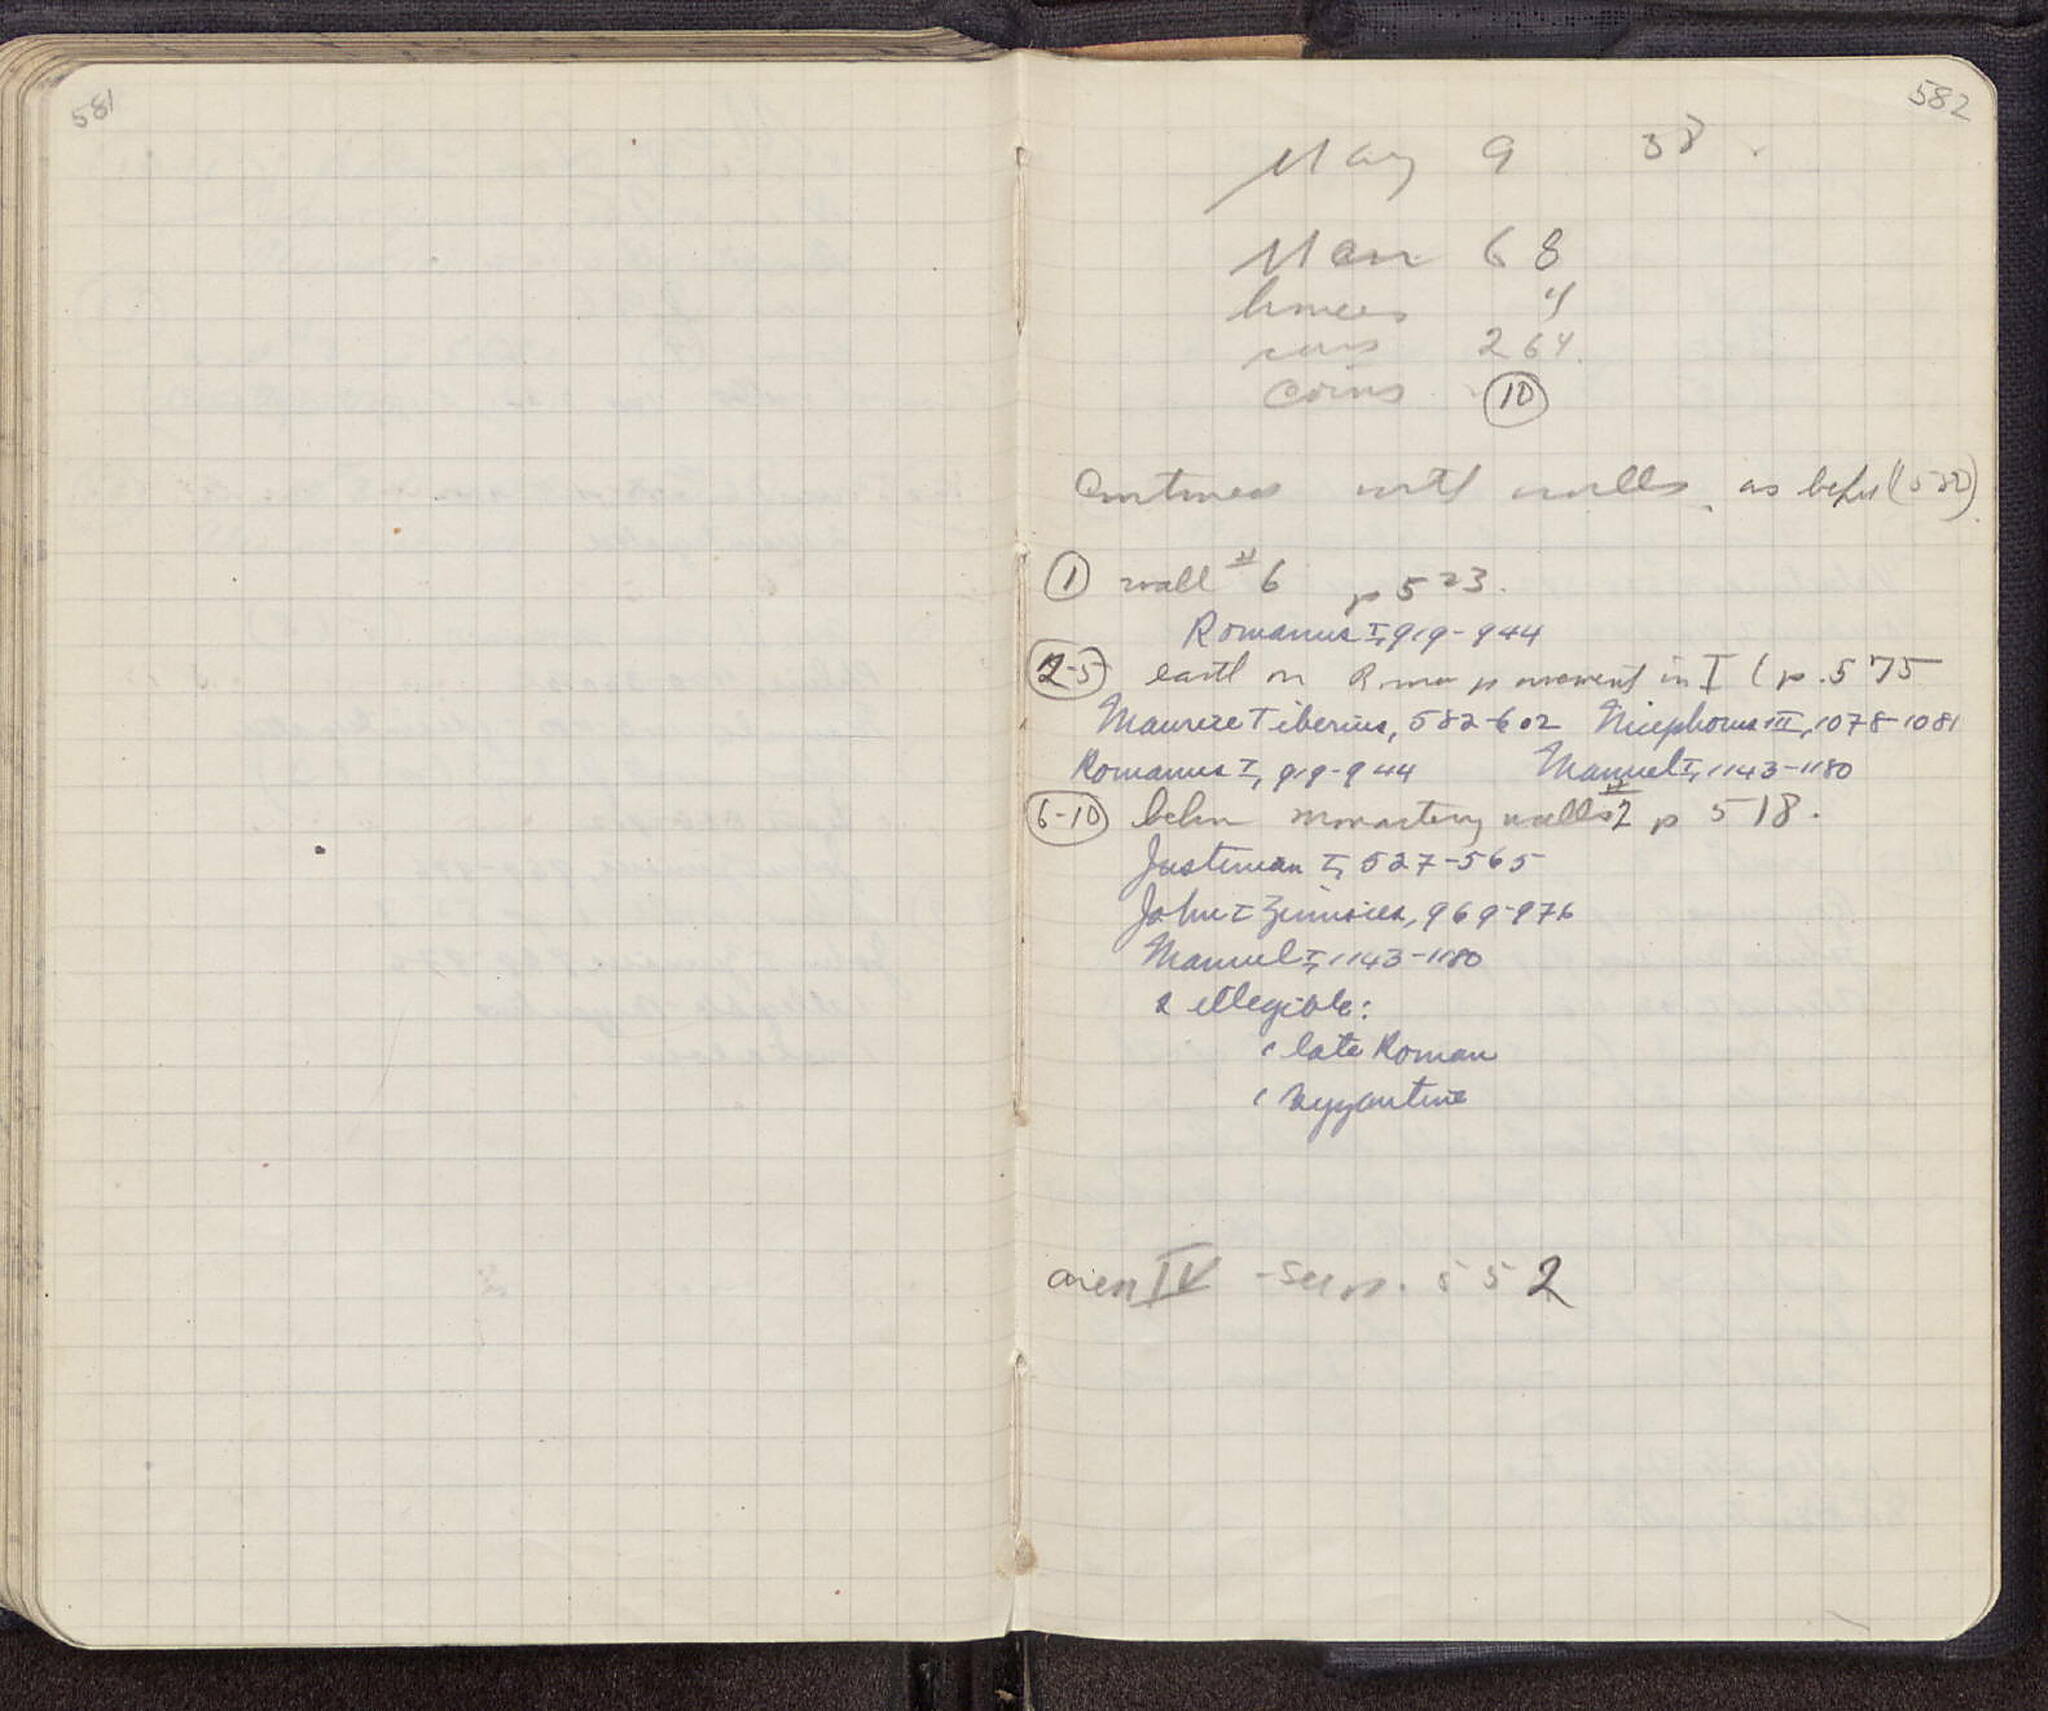 581
582
May 9 38
Men 68
horses 4
cars 264
coins 10
Continues with walls, as before (580)
1 wall #6 p 523.
Romanus I, 919-944
2-5 earth on Roman pavement in I (p. 575
Maurice Tiberius, 582-602 Nicephorus III, 1078-1081
Romanus I, 919-944 Manuel I, 1143-1180
6-10 below monastery walls #2 p 518.
Justinian I, 527-565
John I Zimisces, 969-976
Manuel I, 1143-1180
2 illegible:
1 late Roman
1 Byzantine
area IV - see p. 552